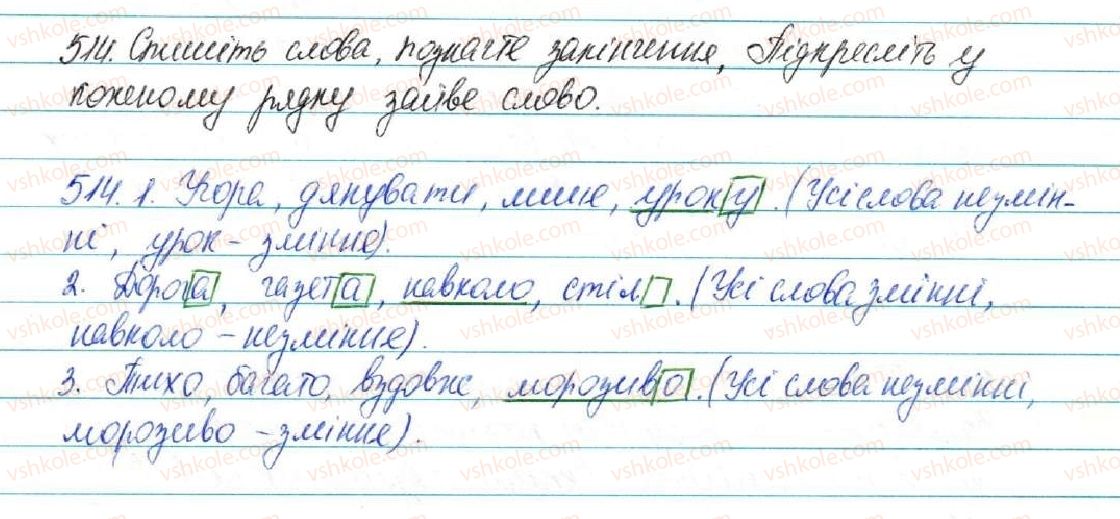 514. Спишіть слова, позначте закінчення, Підкресліть у
кожному рядку зайве слово.
514. 1. Угора, дякувати, лише, уроку. (Усі слова незмін-
ні, урок - змінне).
2. Дорога, газета, навколо, стіл. (Усі слова змінні,
навколо - незмінне).
3. Тихо, багато, вздовж, морозиво. (Усі слова незмінні,
морозиво - змінне).